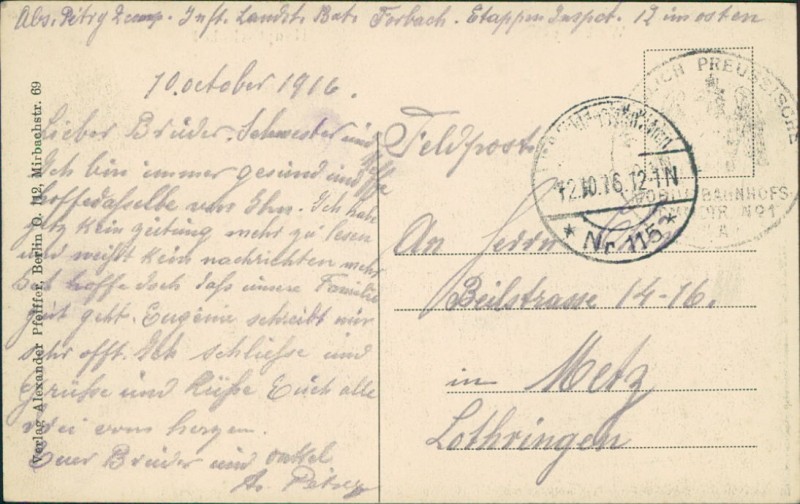 Abs. Pétry 2 comp. Inft. Landst. Bat. Forbach. Etappen Inspct. 12 im osten
10. october 1916.
Lieber Brüder. Schwester und Neffe
Ich bin immer gesund und
hoffe dasselbe von Ihn. Ich habe
jetz kein zeitung mehr zu lesen
und weißt kein nachrichten mehr
hoffe doch daß unsere Familie
gut geht. Eugénie schreibt mir
sehr offt. Ich schließe und
Grüße und Küße Euch alle
drei vom herzen.
Euer Brüder und onkel
A. Pétry
Verlag Alexander Pfeiffer, Berlin O. 112, Mirbachstr. 69
Feldpost.
12.10.16.12-1N
* Nr. 115 *
PREUSSISCHE
BAHNHOFS
No 1
An Herrn
Beilstrasse 14-16.
in Metz
Lothringen